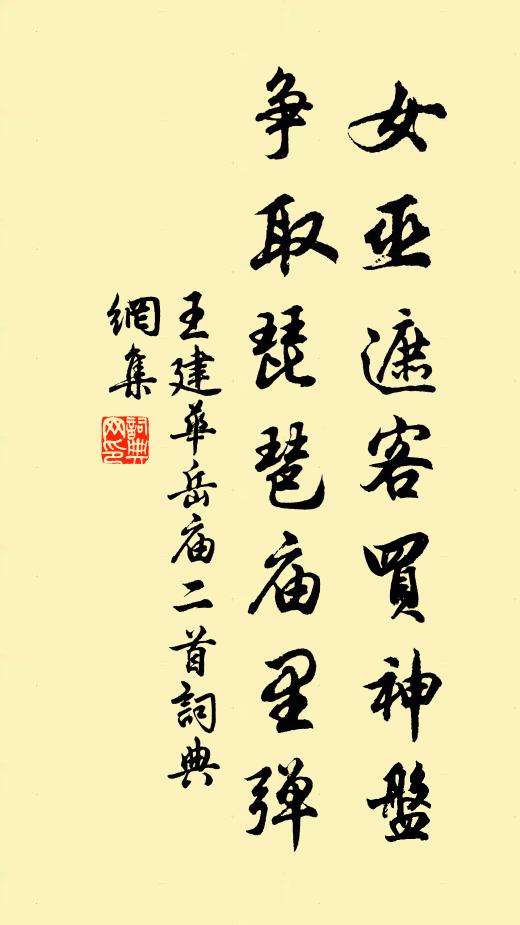 女巫遮客買神盤
争取琵琶庙里弹
王建華岳庙二首詞典
網集
詞典
网印